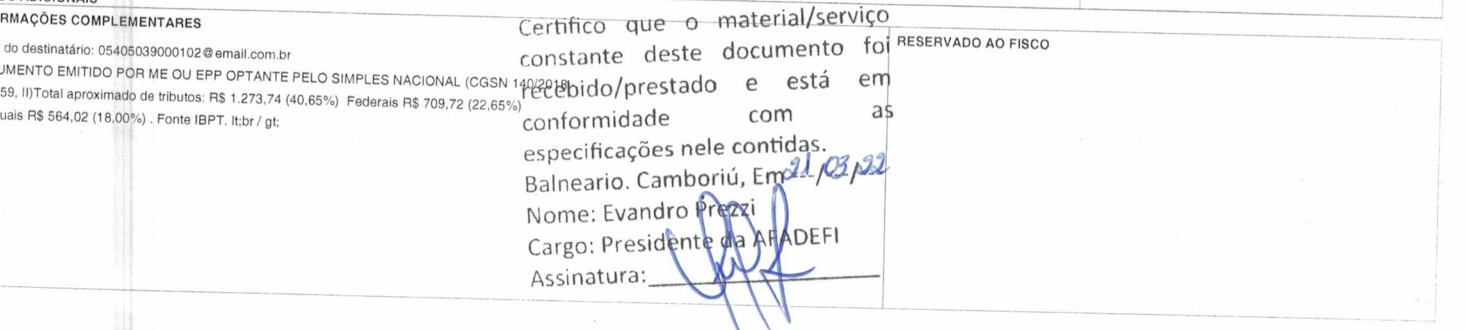 RMAÇÕES COMPLEMENTARES
do destinatário: 05405039000102@email.com.br
UMENTO EMITIDO POR ME OU EPP OPTANTE PELO SIMPLES NACIONAL (CGSN 140/2018,
59, II)Total aproximado de tributos: R$ 1.273,74 (40,65%) Federais R$ 709,72 (22,65%)
uais R$ 564,02 (18,00%) . Fonte IBPT. lt;br / gt;
Certifico que o material/serviço
constante deste documento foi
recebido/prestado e está em
conformidade com as
especificações nele contidas.
Balneario. Camboriú, Em 21/03/22
Nome: Evandro Prezzi
Cargo: Presidente da AFADEFI
Assinatura:
RESERVADO AO FISCO